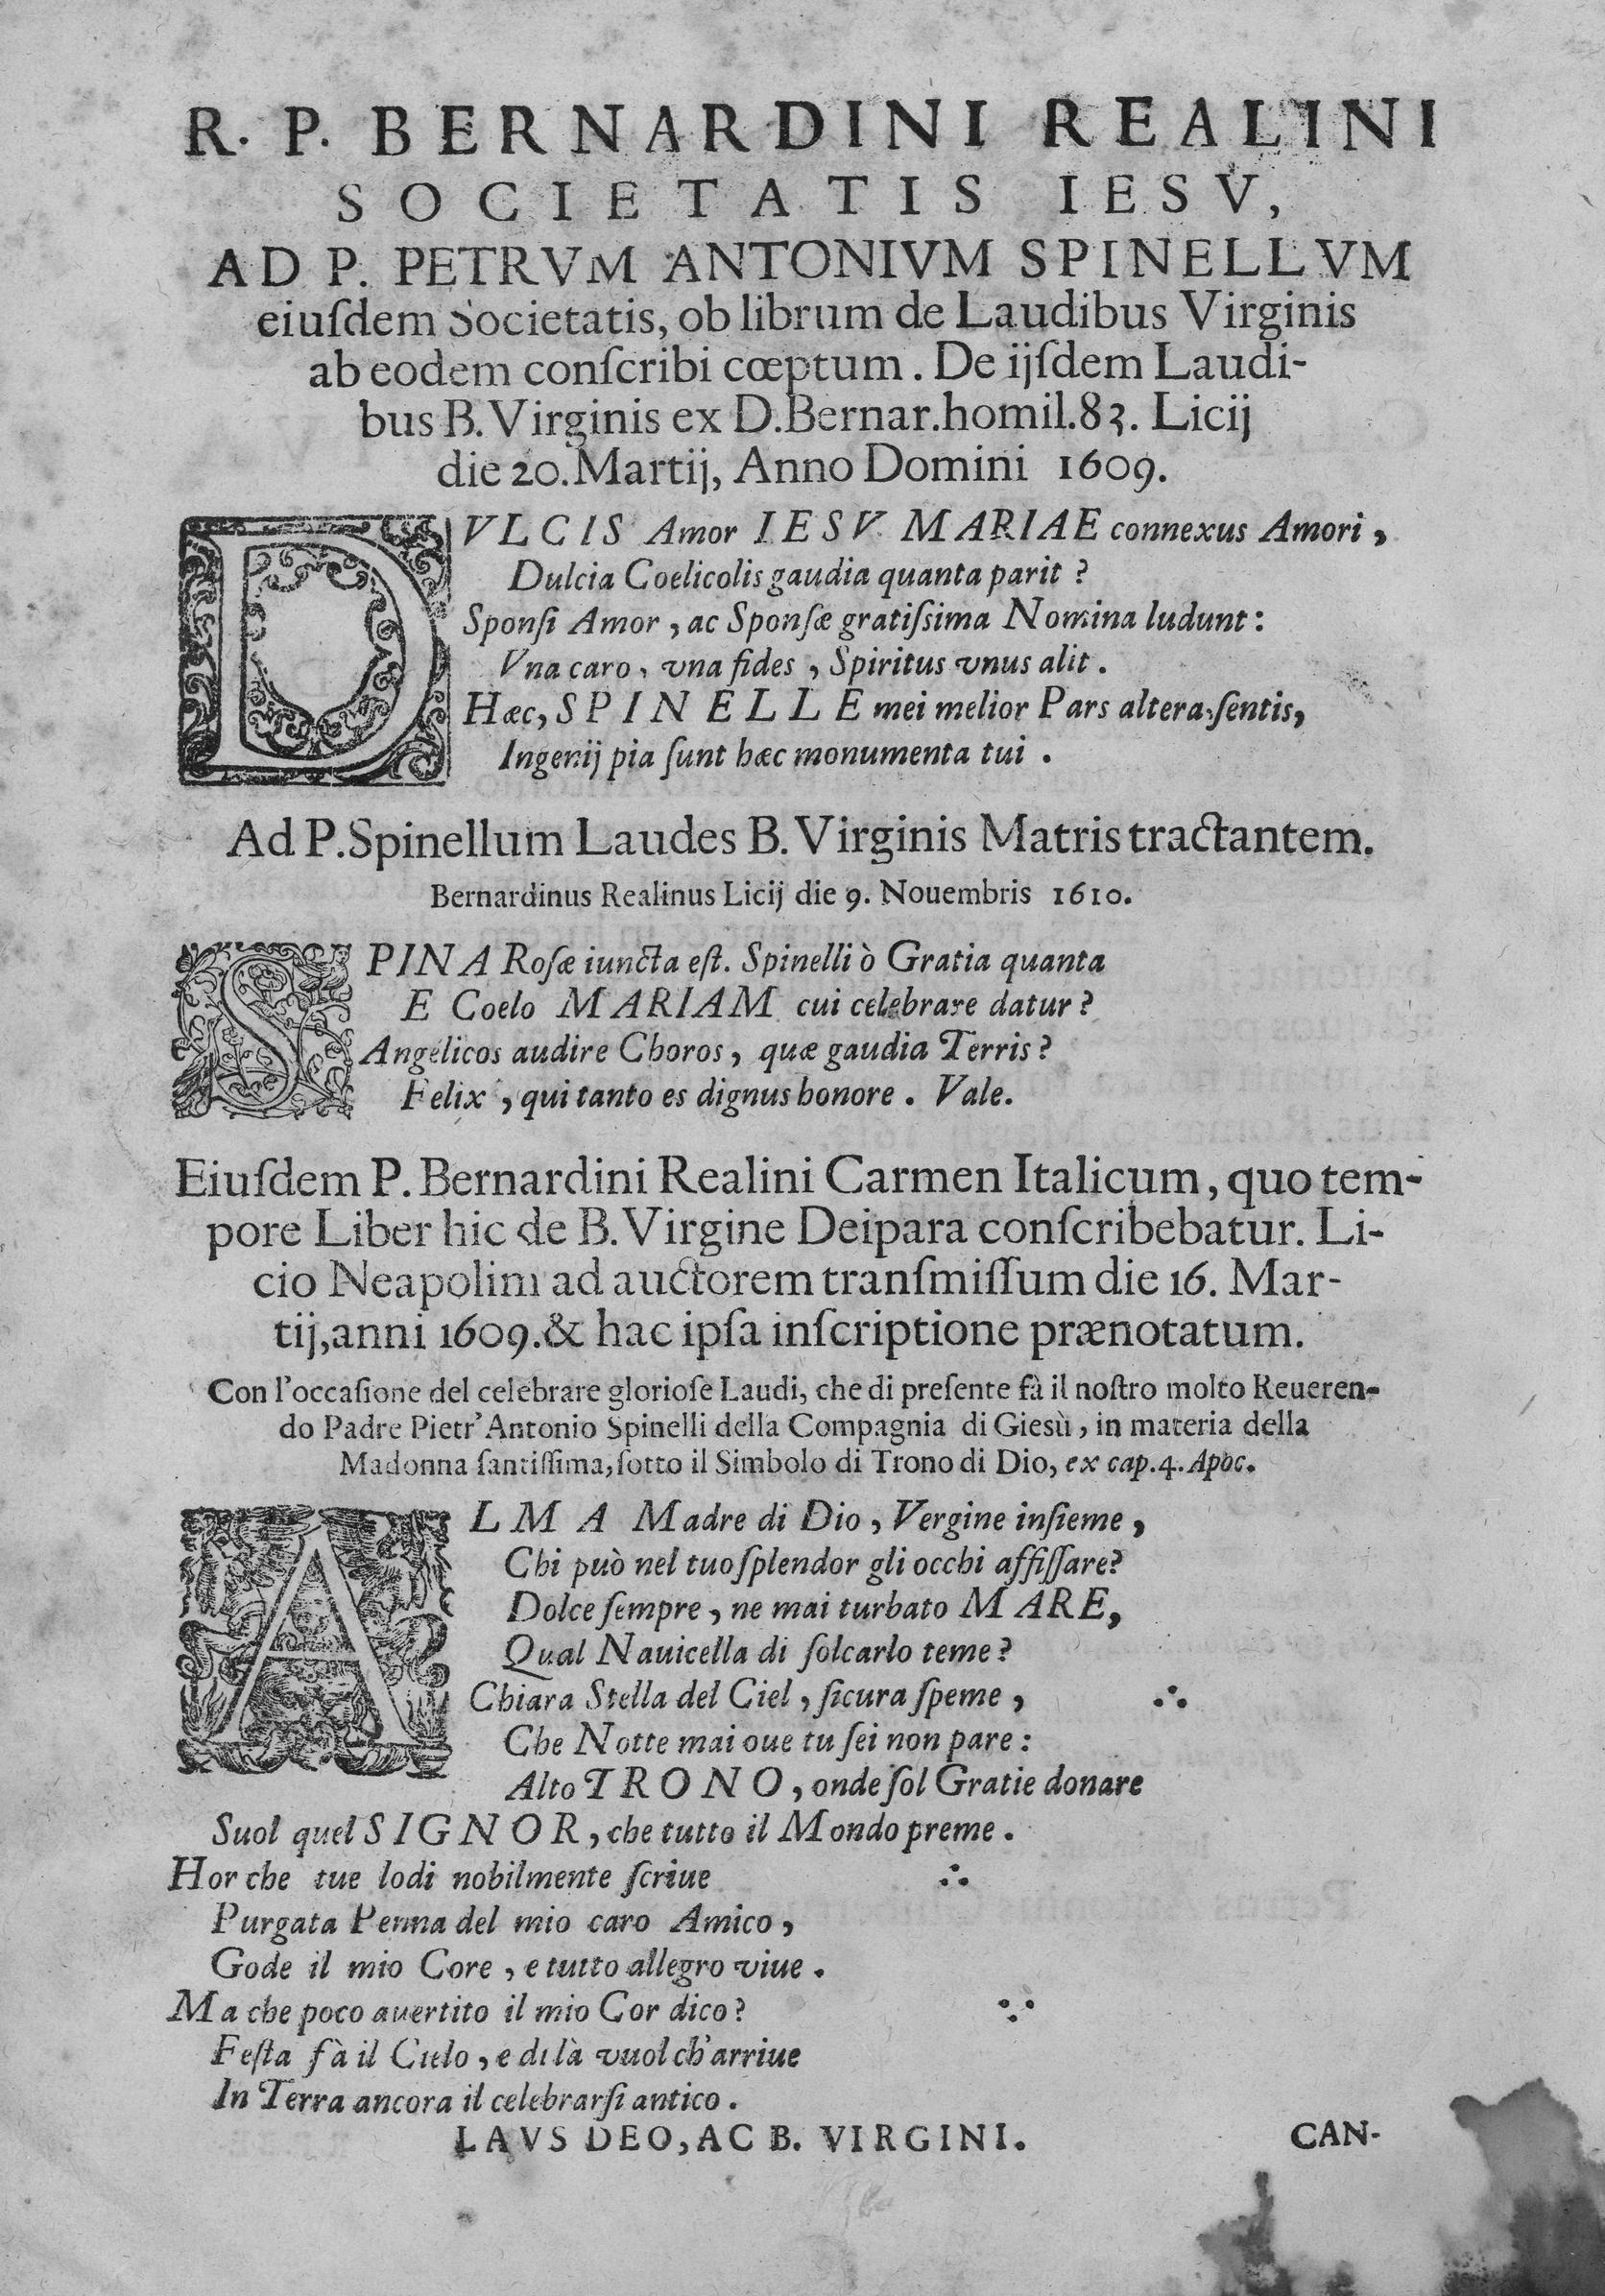 R. P. BERNARDINI REALINI
SOCIETATIS IESV,
AD P. PETRVM ANTONIVM SPINELLVM
eiuſdem Societatis, ob librum de Laudibus Virginis
ab eodem conſcribi cœptum. De ijſdem Laudi-
bus B. Virginis ex D. Bernar. homil. 83. Licij
die 20. Martij, Anno Domini 1609.
DVLCIS Amor IESV MARIAE connexus Amori,
Dulcia Coelicolis gaudia quanta parit?
Sponſi Amor, ac Sponſæ gratiſsima Nomina ludunt:
Vna caro, vna fides, Spiritus vnus alit.
Hæc, SPINELLE mei melior Pars altera, ſentis,
Ingenij pia ſunt hæc monumenta tui.
Ad P. Spinellum Laudes B. Virginis Matris tractantem.
Bernardinus Realinus Licij die 9. Nouembris 1610.
SPINA Roſæ iuncta eſt. Spinelli ò Gratia quanta
E Coelo MARIAM cui celebrare datur?
Angelicos audire Choros, quæ gaudia Terris?
Felix, qui tanto es dignus honore. Vale.
Eiuſdem P. Bernardini Realini Carmen Italicum, quo tem-
pore Liber hic de B. Virgine Deipara conſcribebatur. Li-
cio Neapolim ad auctorem tranſmiſſum die 16. Mar-
tij, anni 1609. & hac ipſa inſcriptione prænotatum.
Con l'occaſione del celebrare glorioſe Laudi, che di preſente fà il noſtro molto Reueren-
do Padre Pietr' Antonio Spinelli della Compagnia di Giesù, in materia della
Madonna ſantiſſima, ſotto il Simbolo di Trono di Dio, ex cap. 4. Apoc.
ALMA Madre di Dio, Vergine inſieme,
Chi può nel tuo ſplendor gli occhi affiſſare?
Dolce ſempre, ne mai turbato MARE,
Qual Nauicella di ſolcarlo teme?
Chiara Stella del Ciel, ſicura ſpeme,
Che Notte mai oue tu ſei non pare:
Alto TRONO, onde ſol Gratie donare
Suol quel SIGNOR, che tutto il Mondo preme.
Hor che tue lodi nobilmente ſcriue
Purgata Penna del mio caro Amico,
Gode il mio Core, e tutto allegro viue.
Ma che poco auertito il mio Cor dico?
Feſta fà il Cielo, e di là vuol ch'arriue
In Terra ancora il celebrarſi antico.
LAVS DEO, AC B. VIRGINI.
CAN-